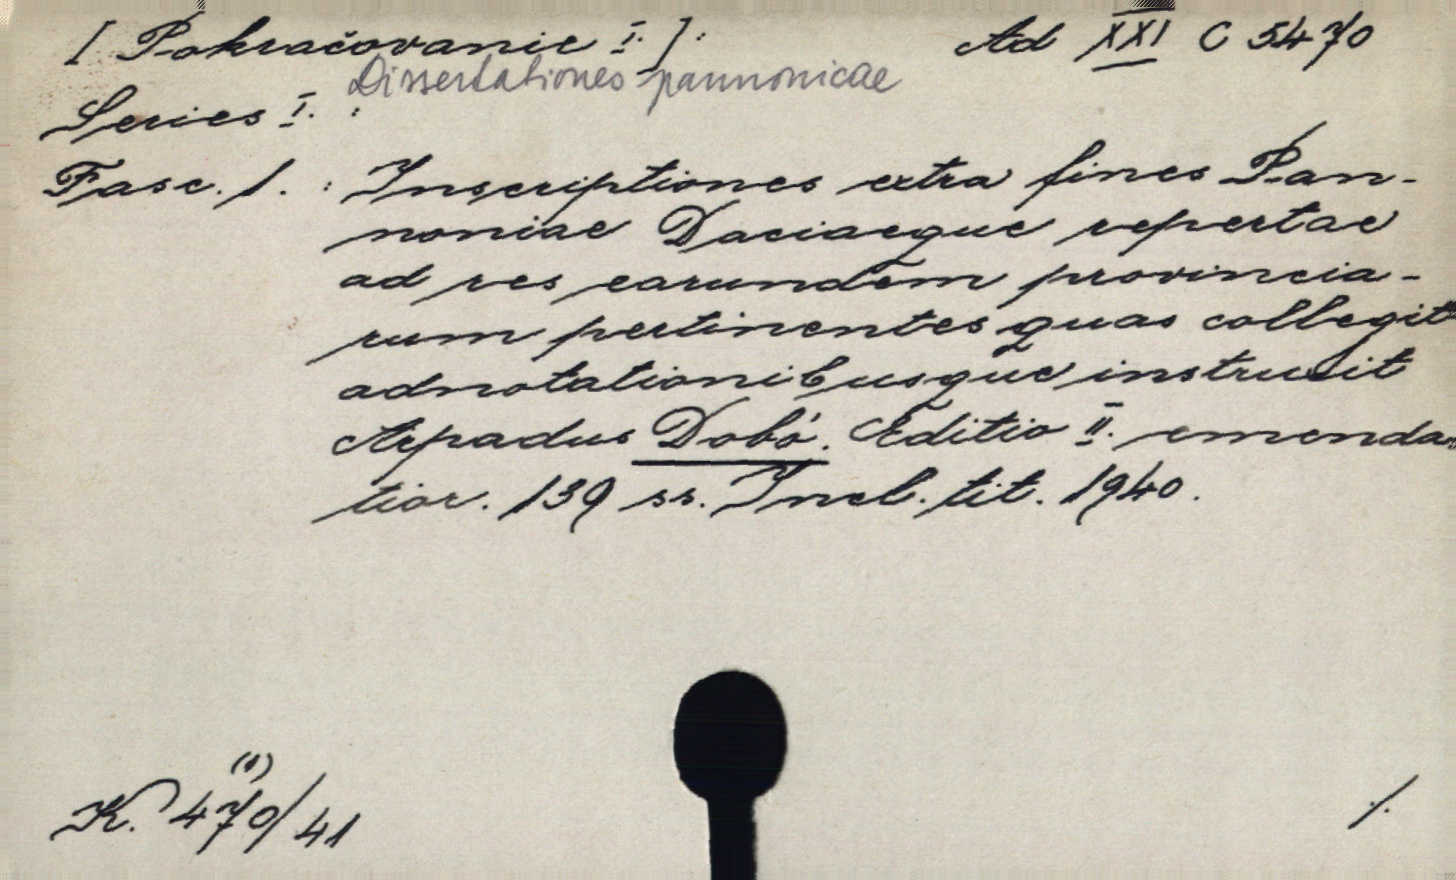 [Pokračovanie I.]: Ad XXI C 5470
Dissertationes pannonicae
Series I. :
Fasc. 1. : Inscriptiones extra fines Pan-
noniae Daciaeque repertae
ad res earundem provincia-
rum pertinentes quas collegit
adnotationibusque instruxit
Arpadus Dobó. Editio II. emenda-
tior. 139 ss. Incl. tit. 1940.
(1)
K. 470/41
./.